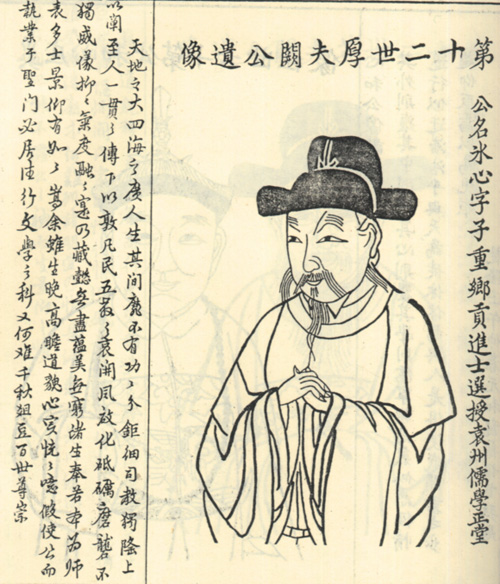 第十二世厚夫闕公遺像
公名氷心字子重鄉貢進士選授袁州儒學正堂
天地之大四海之廣人生其間靡不有功々分鉅細司教獨隆上
以闡至人一貫之傳下以敦凡民五教之衷開風啟化砥礪磨礱不
獨威儀抑々氣度融々寔乃藏懿無盡蘊美無窮諸生奉若本為師
表多士景仰有如嵩余雖生晚高瞻道貌心恍々噫假使公而
執業于聖門必居德行文學之科又何难千秋俎豆百世尊宗